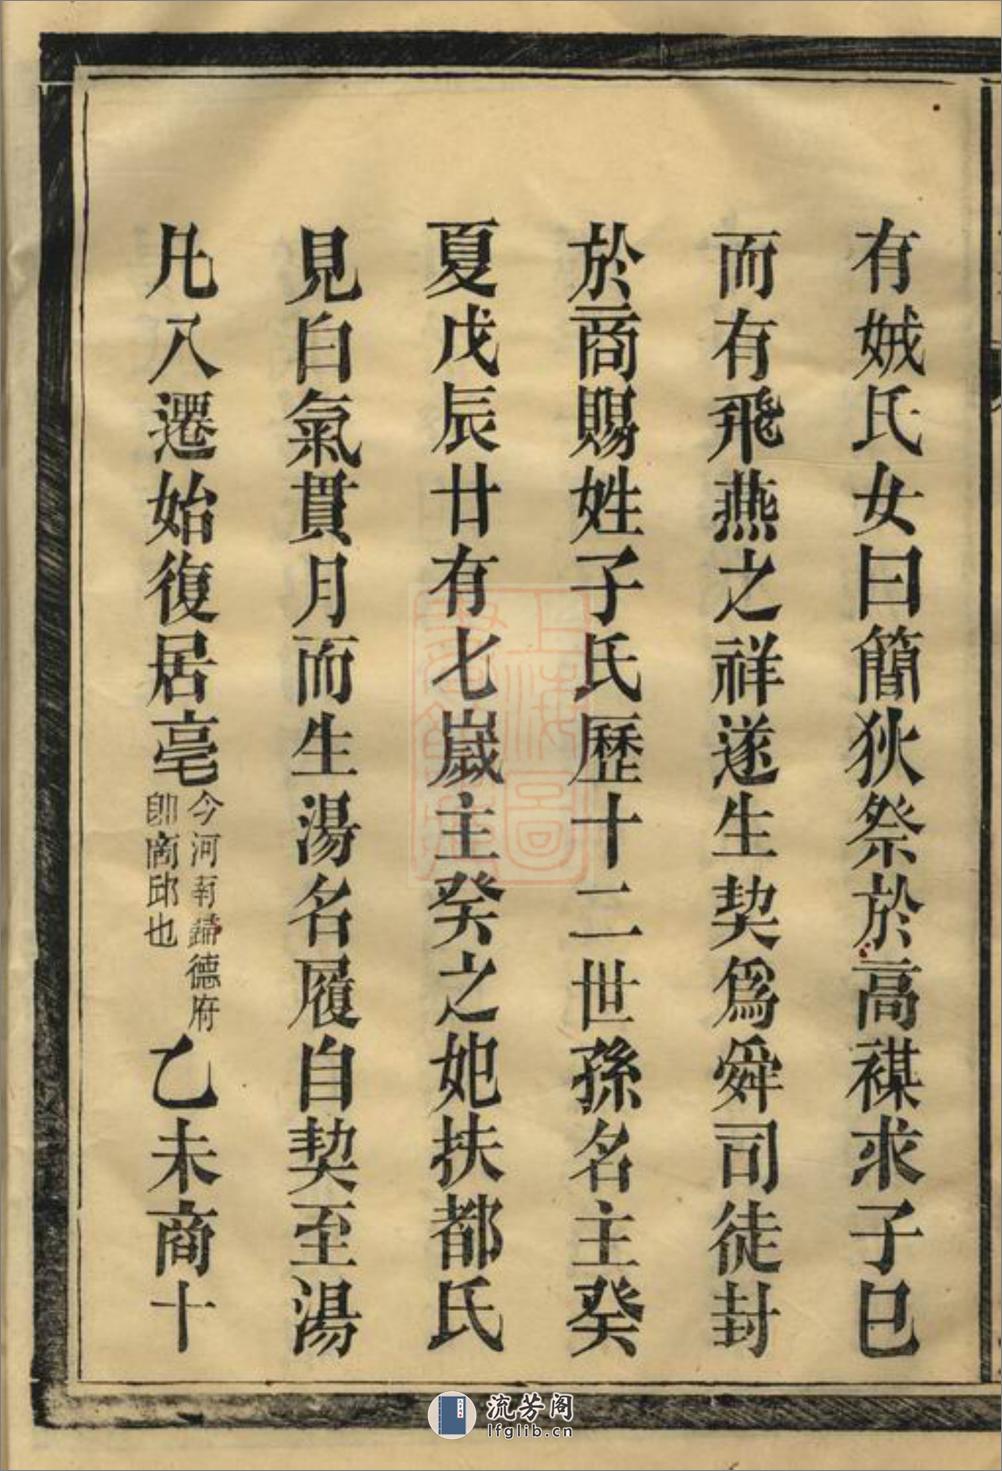 有娀氏女曰簡狄祭於高禖求子巳
而有飛燕之祥遂生契爲舜司徒封
於商賜姓子氏歷十二世孫名主癸
夏戊辰廿有七嵗主癸之妃扶都氏
見白氣貫月而生湯名履自契至湯
凡八遷始復居亳今河南歸德府即商邱也乙未商十
流芳阁
lfglib.cn